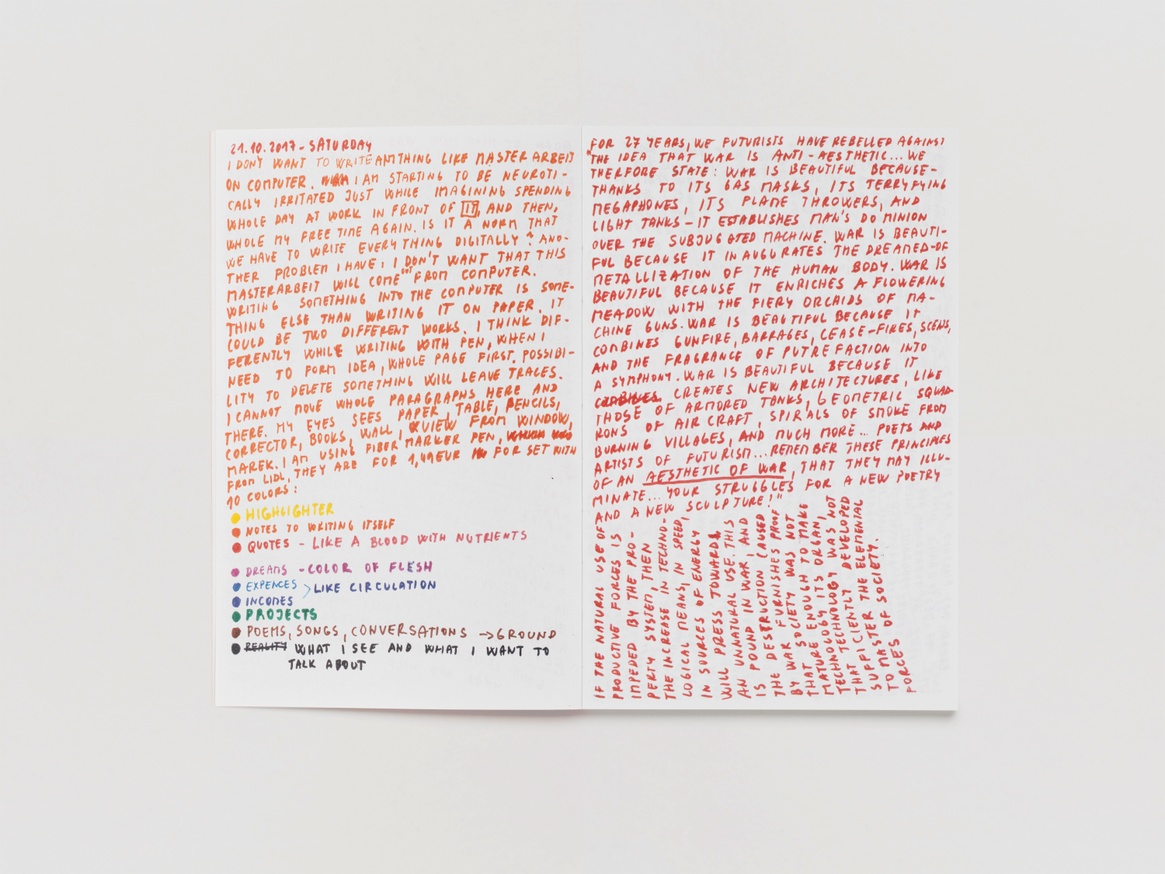 21.10.2017 - SATURDAY
I DON'T WANT TO WRITE ANYTHING LIKE MASTERARBEIT
ON COMPUTER. I AM STARTING TO BE NEUROTI-
CALLY IRRITATED JUST WHILE IMAGINING SPENDING
WHOLE DAY AT WORK IN FRONT OF IT, AND THEN,
WHOLE MY FREE TIME AGAIN. IS IT A NORM THAT
WE HAVE TO WRITE EVERYTHING DIGITALLY? ANO-
THER PROBLEM I HAVE: I DON'T WANT THAT THIS
MASTERARBEIT WILL COME "FROM COMPUTER.
WRITING SOMETHING INTO THE COMPUTER IS SOME-
THING ELSE THAN WRITING IT ON PAPER. IT
COULD BE TWO DIFFERENT WORKS. I THINK DIF-
FERENTLY WHILE WRITING WITH PEN, WHEN I
NEED TO FORM IDEA, WHOLE PAGE FIRST. POSSIBI-
LITY TO DELETE SOMETHING WILL LEAVE TRACES.
I CANNOT MOVE WHOLE PARAGRAPHS HERE AND
THERE. MY EYES SEES PAPER, TABLE, PENCILS,
CORRECTOR, BOOKS, WALL, VIEW FROM WINDOW,
MAREK. I AM USING FIBER MARKER PEN,
FROM LIDL, THEY ARE FOR 1,49EUR FOR SET WITH
10 COLORS:
HIGHLIGHTER
NOTES TO WRITING ITSELF
QUOTES - LIKE A BLOOD WITH NUTRIENTS
DREAMS - COLOR OF FLESH
EXPENCES > LIKE CIRCULATION
INCOMES
PROJECTS
POEMS, SONGS, CONVERSATIONS → GROUND
REALITY WHAT I SEE AND WHAT I WANT TO
TALK ABOUT
FOR 27 YEARS, WE FUTURISTS HAVE REBELLED AGAINST
"THE IDEA THAT WAR IS ANTI-AESTHETIC... WE
THERFORE STATE: WAR IS BEAUTIFUL BECAUSE-
THANKS TO ITS GAS MASKS, ITS TERRYFYING
MEGAPHONES, ITS FLAME THROWERS, AND
LIGHT TANKS - IT ESTABLISHES MAN'S DOMINION
OVER THE SUBJUGATED MACHINE. WAR IS BEAUTI-
FUL BECAUSE IT INAUGURATES THE DREAMED-OF
METALLIZATION OF THE HUMAN BODY. WAR IS
BEAUTIFUL BECAUSE IT ENRICHES A FLOWERING
MEADOW WITH THE FIERY ORCHIDS OF MA-
CHINE GUNS. WAR IS BEAUTIFUL BECAUSE IT
COMBINES GUNFIRE, BARRAGES, CEASE-FIRES, SCENS,
AND THE FRAGRANCE OF PUTREFACTION INTO
A SYMPHONY. WAR IS BEAUTIFUL BECAUSE IT
COMBINES CREATES NEW ARCHITECTURES, LIKE
THOSE OF ARMORED TANKS, GEOMETRIC SQUAD-
RONS OF AIRCRAFT, SPIRALS OF SMOKE FROM
BURNING VILLAGES, AND MUCH MORE... POETS AND
ARTISTS OF FUTURISM... REMEMBER THESE PRINCIPLES
OF AN AESTHETIC OF WAR, THAT THEY MAY ILLU-
MINATE... YOUR STRUGGLES FOR A NEW POETRY
AND A NEW SCULPTURE!"
IF THE NATURAL USE OF
PRODUCTIVE FORCES IS
IMPEDED BY THE PRO-
PERTY SYSTEM, THEN
THE INCREASE IN TECHNO-
LOGICAL MEANS, IN SPEED,
IN SOURCES OF ENERGY
WILL PRESS TOWARDS
AN UNNATURAL USE. THIS
IS FOUND IN WAR, AND
THE DESTRUCTION CAUSED
BY WAR FURNISHES PROOF
THAT SOCIETY WAS NOT
MATURE ENOUGH TO MAKE
TECHNOLOGY ITS ORGAN,
THAT TECHNOLOGY WAS NOT
SUFFICIENTLY DEVELOPED
TO MASTER THE ELEMENTAL
FORCES OF SOCIETY.